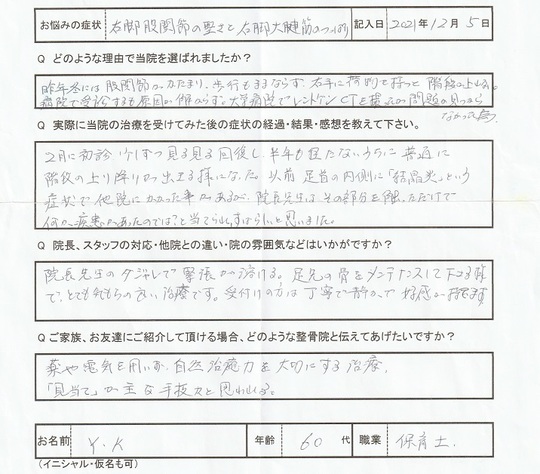 お悩みの症状 右脚股関節の堅さと右脚大腿筋のつっぱり 記入日 2021年12月5日
Q どのような理由で当院を選ばれましたか?
昨年冬には股関節がかたまり、歩行もままならず、右手に荷物を持って階段の上り
病院で受診するも原因が判らず。大学病院でレントゲン CTを撮っても問題が見つから
なかった為
Q 実際に当院の治療を受けてみた後の症状の経過・結果・感想を教えて下さい。
2月に初診、少しずつ見る見る回復し、半年も経たないうちに普通に
階段の上り降りが出来る様になった。以前足首の内側に「結晶炎」という
症状で他院にかかった事があるが、院長先生はその部分を触っただけで
何か疾患があったのでは?と当てられ、すばらしいと思いました。
Q 院長、スタッフの対応・他院との違い・院の雰囲気などはいかがですか?
院長先生のダジャレで緊張が溶ける。足先の骨をメンテナンスして下さる様
で、とても気もちの良い治療です。受付けの方は丁寧で静かで好感が持てます
Qご家族、お友達にご紹介して頂ける場合、どのような整骨院と伝えてあげたいですか?
薬や電気を用いず、自然治癒力を大切にする治療。
「見当て」が主な手技だと思われる。
お名前 Y.K 年齢 60代 職業 保育士.
(イニシャル・仮名も可)